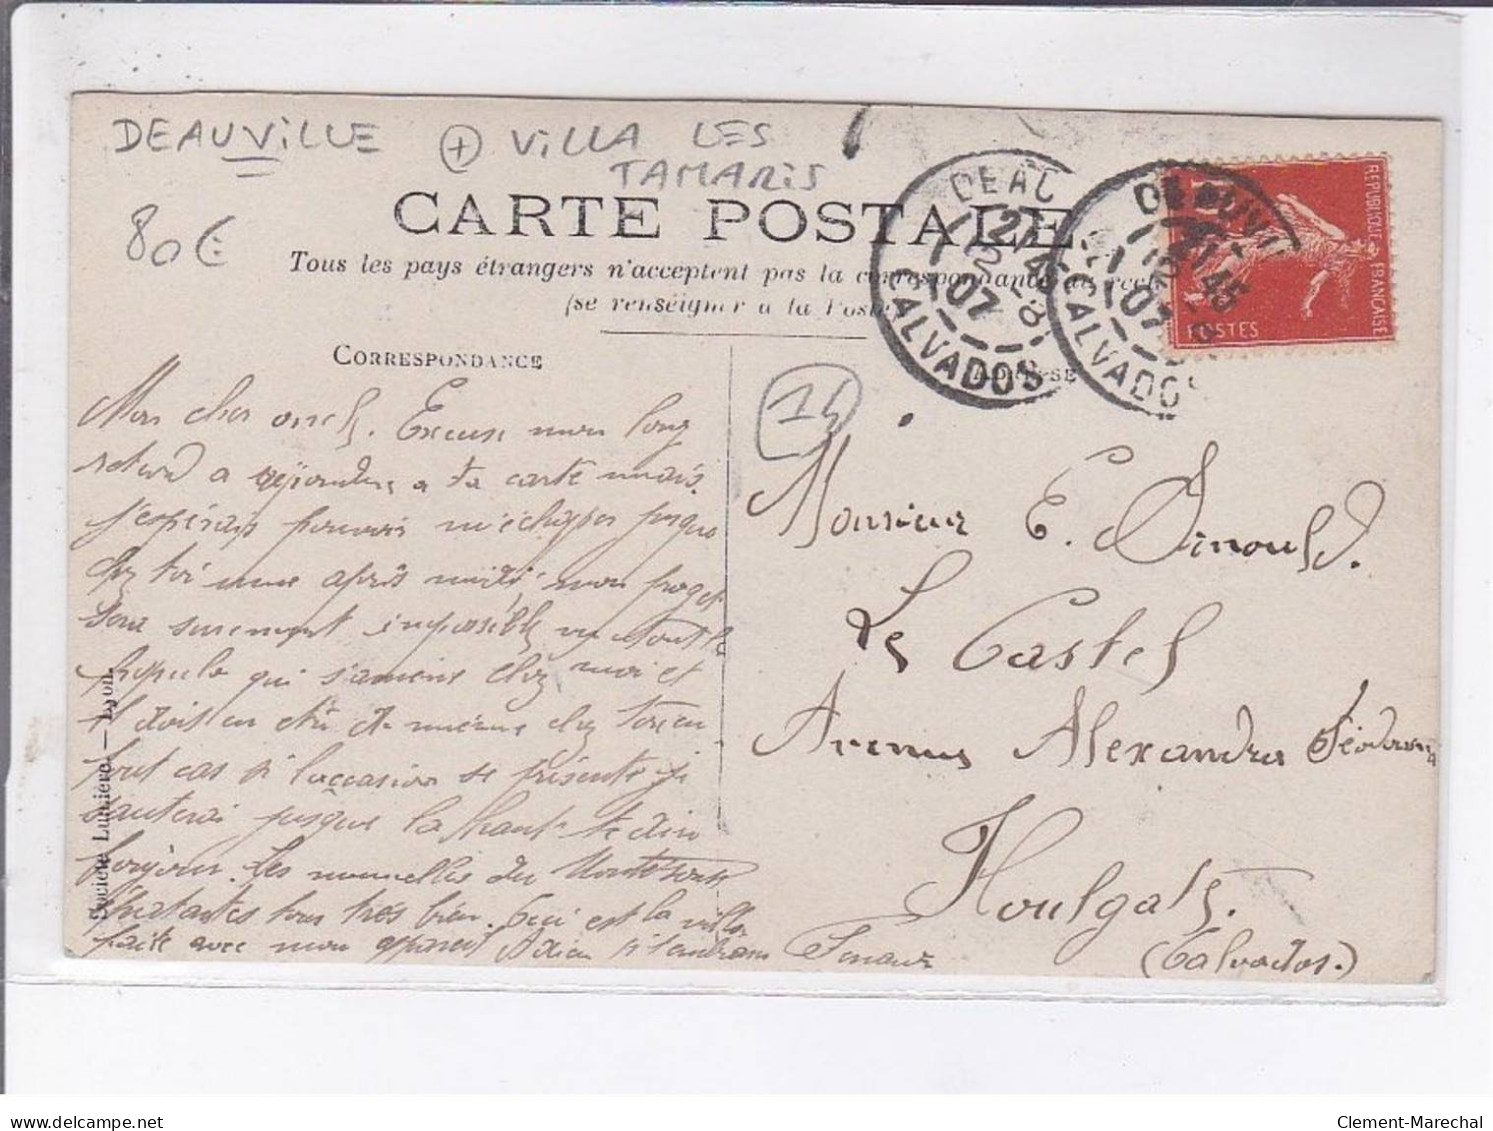 DEAUVILLE + VILLA LES
TAMARIS
80€
CARTE POSTALE
Tous les pays étrangers n'acceptent pas la correspondance au recto
(se renseigner à la Poste)
CORRESPONDANCE
ADRESSE
14
DEAUVILLE
21 45
12 -8
07
CALVADOS
DEAUVILLE
21 45
12 -8
07
CALVADOS
REPUBLIQUE FRANÇAISE
POSTES
Mon cher oncle. Excuse mon long
retard a répondre a ta carte mais
j'espérais pouvoir m'échapper jusque
chez toi une apres midi, mon projet
sera surement impossible vu
qui s'amène chez moi et
doit en être de même chez toi en
tout cas si l'occasion se présente je
sauterai jusque la haut te dire
bonjour. Les nouvelles du
tous très bien. Ceci est la villa
faite avec mon appareil
Monsieur E. Dinould.
Le Castel
Avenue Alexandra Féodorovna
Houlgate.
(Calvados.)
Société Lumière. — Lyon.
Clement-Marechal
delcampe.net